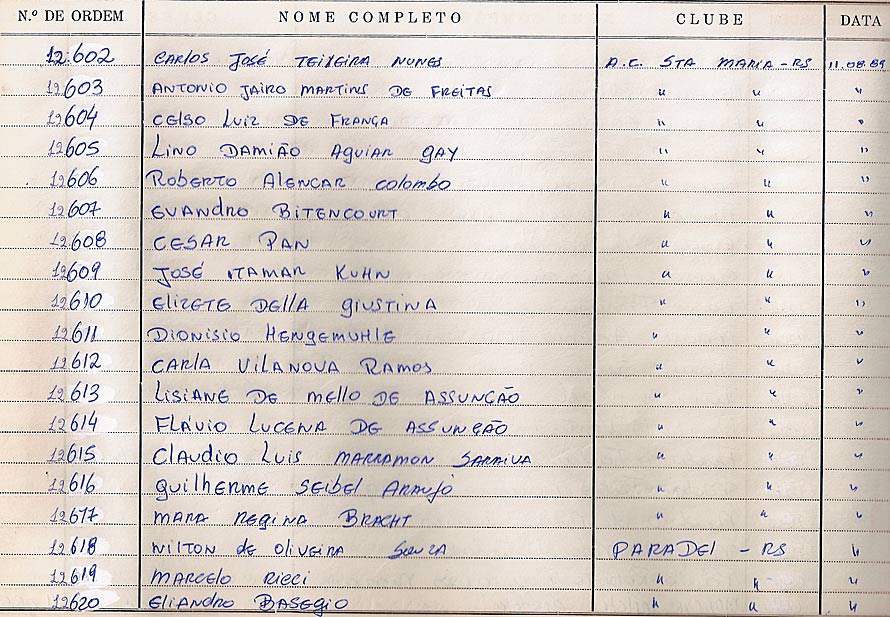 N.º DE ORDEM NOME COMPLETO CLUBE DATA
12.602 CARLOS JOSÉ TEIXEIRA NUNES A.C. STA MARIA - RS 11.08.89
12603 ANTONIO JAIRO MARTINS DE FREITAS " " "
12604 CELSO LUIZ DE FRANÇA " " "
12605 LINO DAMIÃO AGUIAR GAY " " "
12606 ROBERTO ALENCAR COLOMBO " " "
12607 EVANDRO BITENCOURT " " "
12608 CESAR PAN " " "
12609 JOSÉ ITAMAR KUHN " " "
12610 ELIZETE DELLA GIUSTINA " " "
12611 DIONISIO HENGEMUHLE " " "
12612 CARLA VILANOVA RAMOS " " "
12613 LISIANE DE MELLO DE ASSUNÇÃO " " "
12614 FLÁVIO LUCENA DE ASSUNÇÃO " " "
12615 CLAUDIO LUIS MARRAMON SARAIVA " " "
12616 GUILHERME SEIBEL ARAUJO " " "
12617 MARA REGINA BRACHT " " "
12618 WILTON DE OLIVEIRA SOUZA PARADEI - RS "
12619 MARCELO RICCI " " "
12620 ELIANDRO BASEGIO " " "